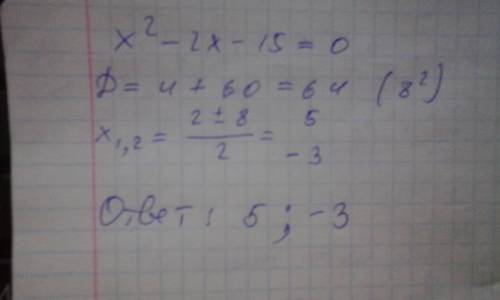 x² - 2x - 15 = 0
D = 4 + 60 = 64 (8²)
x₁,₂ = (2 ± 8)/2 = 5
-3
Ответ: 5; -3